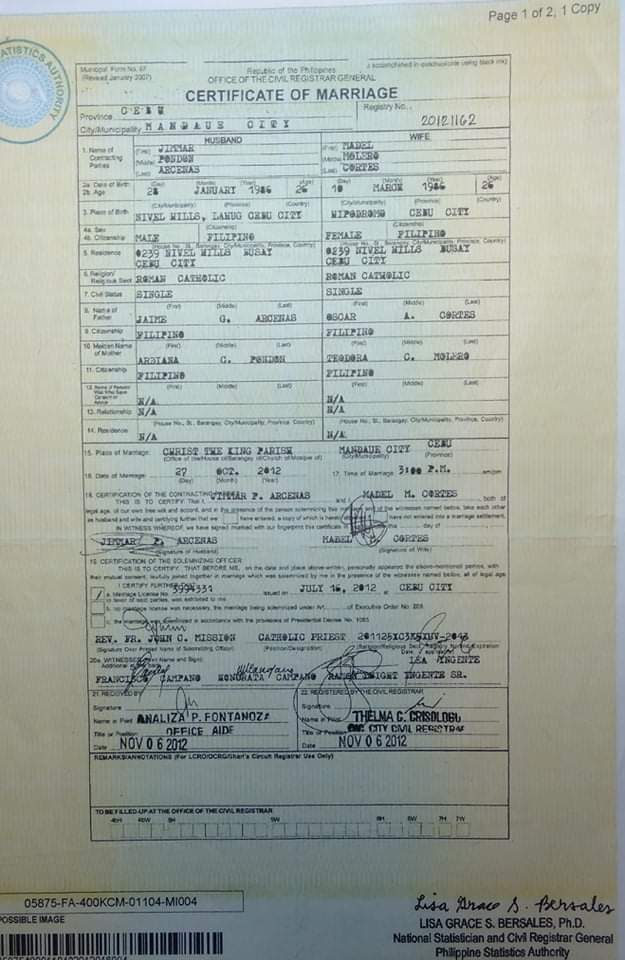 Page 1 of 2, 1 Copy
STATISTICS AUTHORITY
Municipal Form No. 97
(Revised January 2007)
Republic of the Philippines
OFFICE OF THE CIVIL REGISTRAR GENERAL
CERTIFICATE OF MARRIAGE
Province CEBU
Registry No.
City/Municipality MANDAUE CITY
20121162
HUSBAND WIFE
1. Name of Contracting Parties (First) JIMMAR (First) MADEL
(Middle) PONDON (Middle) MOLERO
(Last) ARCENAS (Last) CORTES
2a. Date of Birth (Day) (Month) (Year) (Age) (Day) (Month) (Year) (Age)
2b. Age 28 JANUARY 1986 26 10 MARCH 1986 26
3. Place of Birth (City/Municipality) (Province) (Country) (City/Municipality) (Province) (Country)
NIVEL HILLS, LAHUG CEBU CITY HIPODROMO CEBU CITY
4a. Sex (Citizenship) (Citizenship)
4b. Citizenship MALE FILIPINO FEMALE FILIPINO
(House No., St., Barangay, City/Municipality, Province, Country)
5. Residence #239 NIVEL HILLS BUSAY #239 NIVEL HILLS BUSAY
CEBU CITY CEBU CITY
6. Religion/
Religious Sect ROMAN CATHOLIC ROMAN CATHOLIC
7. Civil Status SINGLE SINGLE
8. Name of Father (First) (Middle) (Last) (First) (Middle) (Last)
JAIME G. ARCENAS OSCAR A. CORTES
9. Citizenship FILIPINO FILIPINO
10. Maiden Name of Mother (First) (Middle) (Last) (First) (Middle) (Last)
C. PONDON TEODORA C. MOLERO
11. Citizenship FILIPINO FILIPINO
(First) (Middle) (Last) (First) (Middle) (Last)
N/A N/A
13. Relationship N/A N/A
14. Residence (House No., St., Barangay, City/Municipality, Province, Country) (House No., St., Barangay, City/Municipality, Province, Country)
N/A N/A
15. Place of Marriage: CHRIST THE KING PARISH MANDAUE CITY CEBU
(City/Municipality) (Province)
16. Date of Marriage: 27 OCT. 2012 17. Time of Marriage: 3:00 P.M. am/pm
(Day) (Month) (Year)
18. CERTIFICATION OF THE CONTRACTING PARTIES:
THIS IS TO CERTIFY: That I, JIMMAR P. ARCENAS and I, MADEL M. CORTES both of
legal age, of our own free will and accord, and in the presence of the person solemnizing this and of the witnesses named below, take each other
as husband and wife and certifying further that we have entered, a copy of which is hereto have not entered into a marriage settlement.
IN WITNESS WHEREOF, we have signed/marked with our fingerprint this certificate in the day of
JIMMAR P. ARCENAS MADEL M. CORTES
(Signature of Husband) (Signature of Wife)
19. CERTIFICATION OF THE SOLEMNIZING OFFICER
THIS IS TO CERTIFY: THAT BEFORE ME, on the date and place above-written, personally appeared the above-mentioned parties, with
their mutual consent, lawfully joined together in marriage which was solemnized by me in the presence of the witnesses named below, all of legal age.
I CERTIFY FURTHER THAT:
a. Marriage License No. 3994331 issued on JULY 16, 2012 at CEBU CITY
in favor of said parties, was exhibited to me
b. no marriage license was necessary, the marriage being solemnized under Art. of Executive Order No. 209
c. the marriage was solemnized in accordance with the provisions of Presidential Decree No. 1083
REV. FR. JOHN C. MISSION CATHOLIC PRIEST
(Signature Over Printed Name of Solemnizing Officer) (Position/Designation)
20a. WITNESSES (Print Name and Sign):
LEA YNGENTE
FRANCISCO CAMPANO HONORATA CAMPANO RAMON DWIGHT YNGENTE SR.
21. RECEIVED BY 22. REGISTERED BY THE CIVIL REGISTRAR
Signature Signature
Name in Print ANALIZA P. FONTANOZA Name in Print THELMA C. CRISOLOGO
Title or Position OFFICE AIDE Title or Position CITY CIVIL REGISTRAR
Date NOV 06 2012 Date NOV 06 2012
REMARKS/ANNOTATIONS (For LCRO/OCRG/Shari'a Circuit Registrar Use Only)
TO BE FILLED-UP AT THE OFFICE OF THE CIVIL REGISTRAR
4bH 4bW 5H 5W 6H 6W 7H 7W
05875-FA-400KCM-01104-MI004
POSSIBLE IMAGE
Lisa Grace S. Bersales
LISA GRACE S. BERSALES, Ph.D.
National Statistician and Civil Registrar General
Philippine Statistics Authority